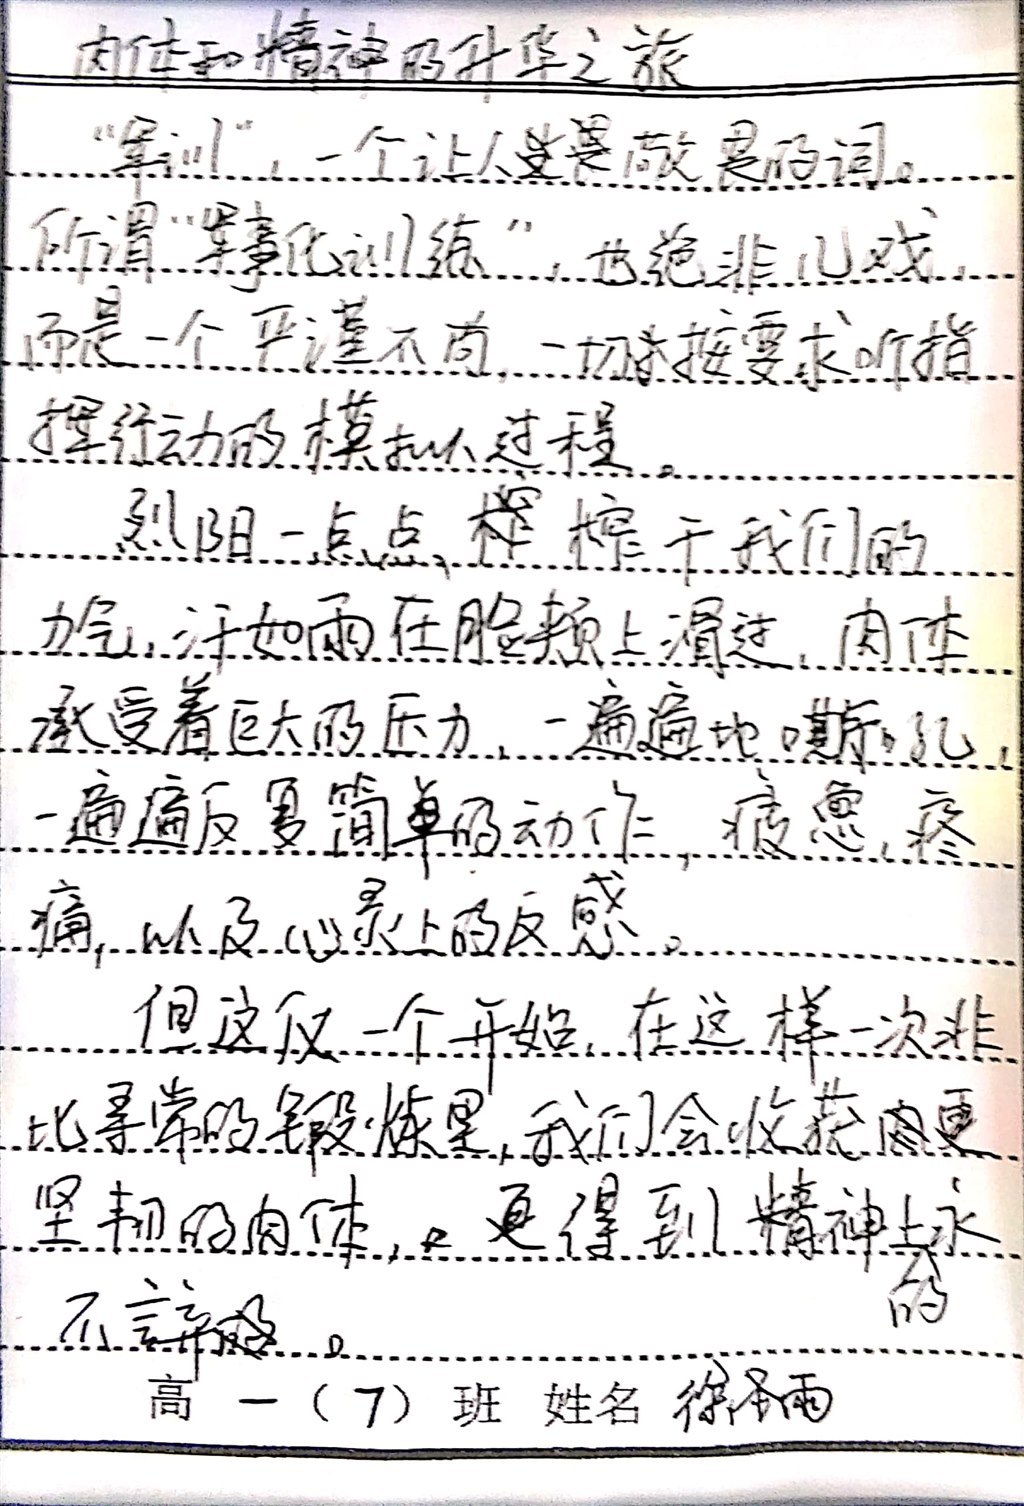 肉体和精神的升华之旅
“军训”，一个让人敬畏的词。
所谓“军事化训练”，也绝非儿戏，
而是一个严谨不苟，一切按要求听指
挥行动的模拟过程。
烈阳一点点榨干我们的
力气，汗如雨在脸颊上滑过，肉体
承受着巨大的压力，一遍遍地嘶吼，
一遍遍反复简单的动作，疲惫，疼
痛，以及心灵上的反感。
但这仅一个开始，在这样一次非
比寻常的锻炼里，我们会收获更
坚韧的肉体，更得到精神上的永
不言辞。
高一（7）班 姓名 徐雨